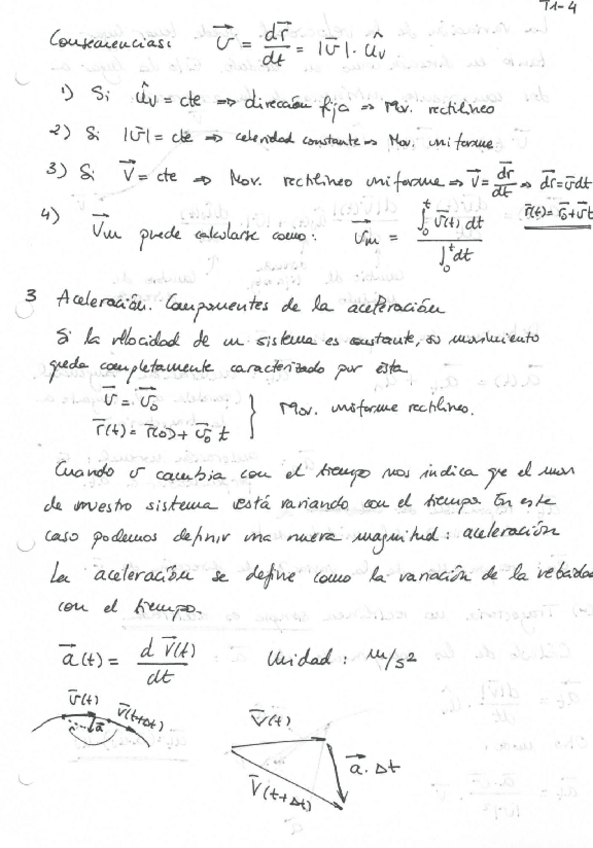 T1-4
Consecuencias: v⃗ = dr⃗/dt = |v⃗| · ûv
1) Si ûv = cte ⇒ dirección fija ⇒ Mov. rectilíneo
2) Si |v⃗| = cte ⇒ celeridad constante ⇒ Mov. uniforme
3) Si v⃗ = cte ⇒ Mov. rectilíneo uniforme ⇒ v⃗ = dr⃗/dt ⇒ dr⃗ = v⃗dt
r⃗(t) = r⃗0 + v⃗t
4) v⃗m puede calcularse como: v⃗m = ∫₀ᵗ v⃗(t) dt / ∫₀ᵗ dt
3 Aceleración. Componentes de la aceleración
Si la velocidad de un sistema es constante, su movimiento
queda completamente caracterizado por ésta
v⃗ = v⃗0
r⃗(t) = r⃗(0) + v⃗0 t } Mov. uniforme rectilíneo.
Cuando v cambia con el tiempo nos indica que el mov
de nuestro sistema está variando con el tiempo. En este
caso podemos definir una nueva magnitud: aceleración
La aceleración se define como la variación de la velocidad
con el tiempo.
a⃗(t) = d v⃗(t)/dt Unidad: m/s²
v⃗(t) v⃗(t+Δt)
a⃗
v⃗(t)
a⃗ · Δt
v⃗(t+Δt)